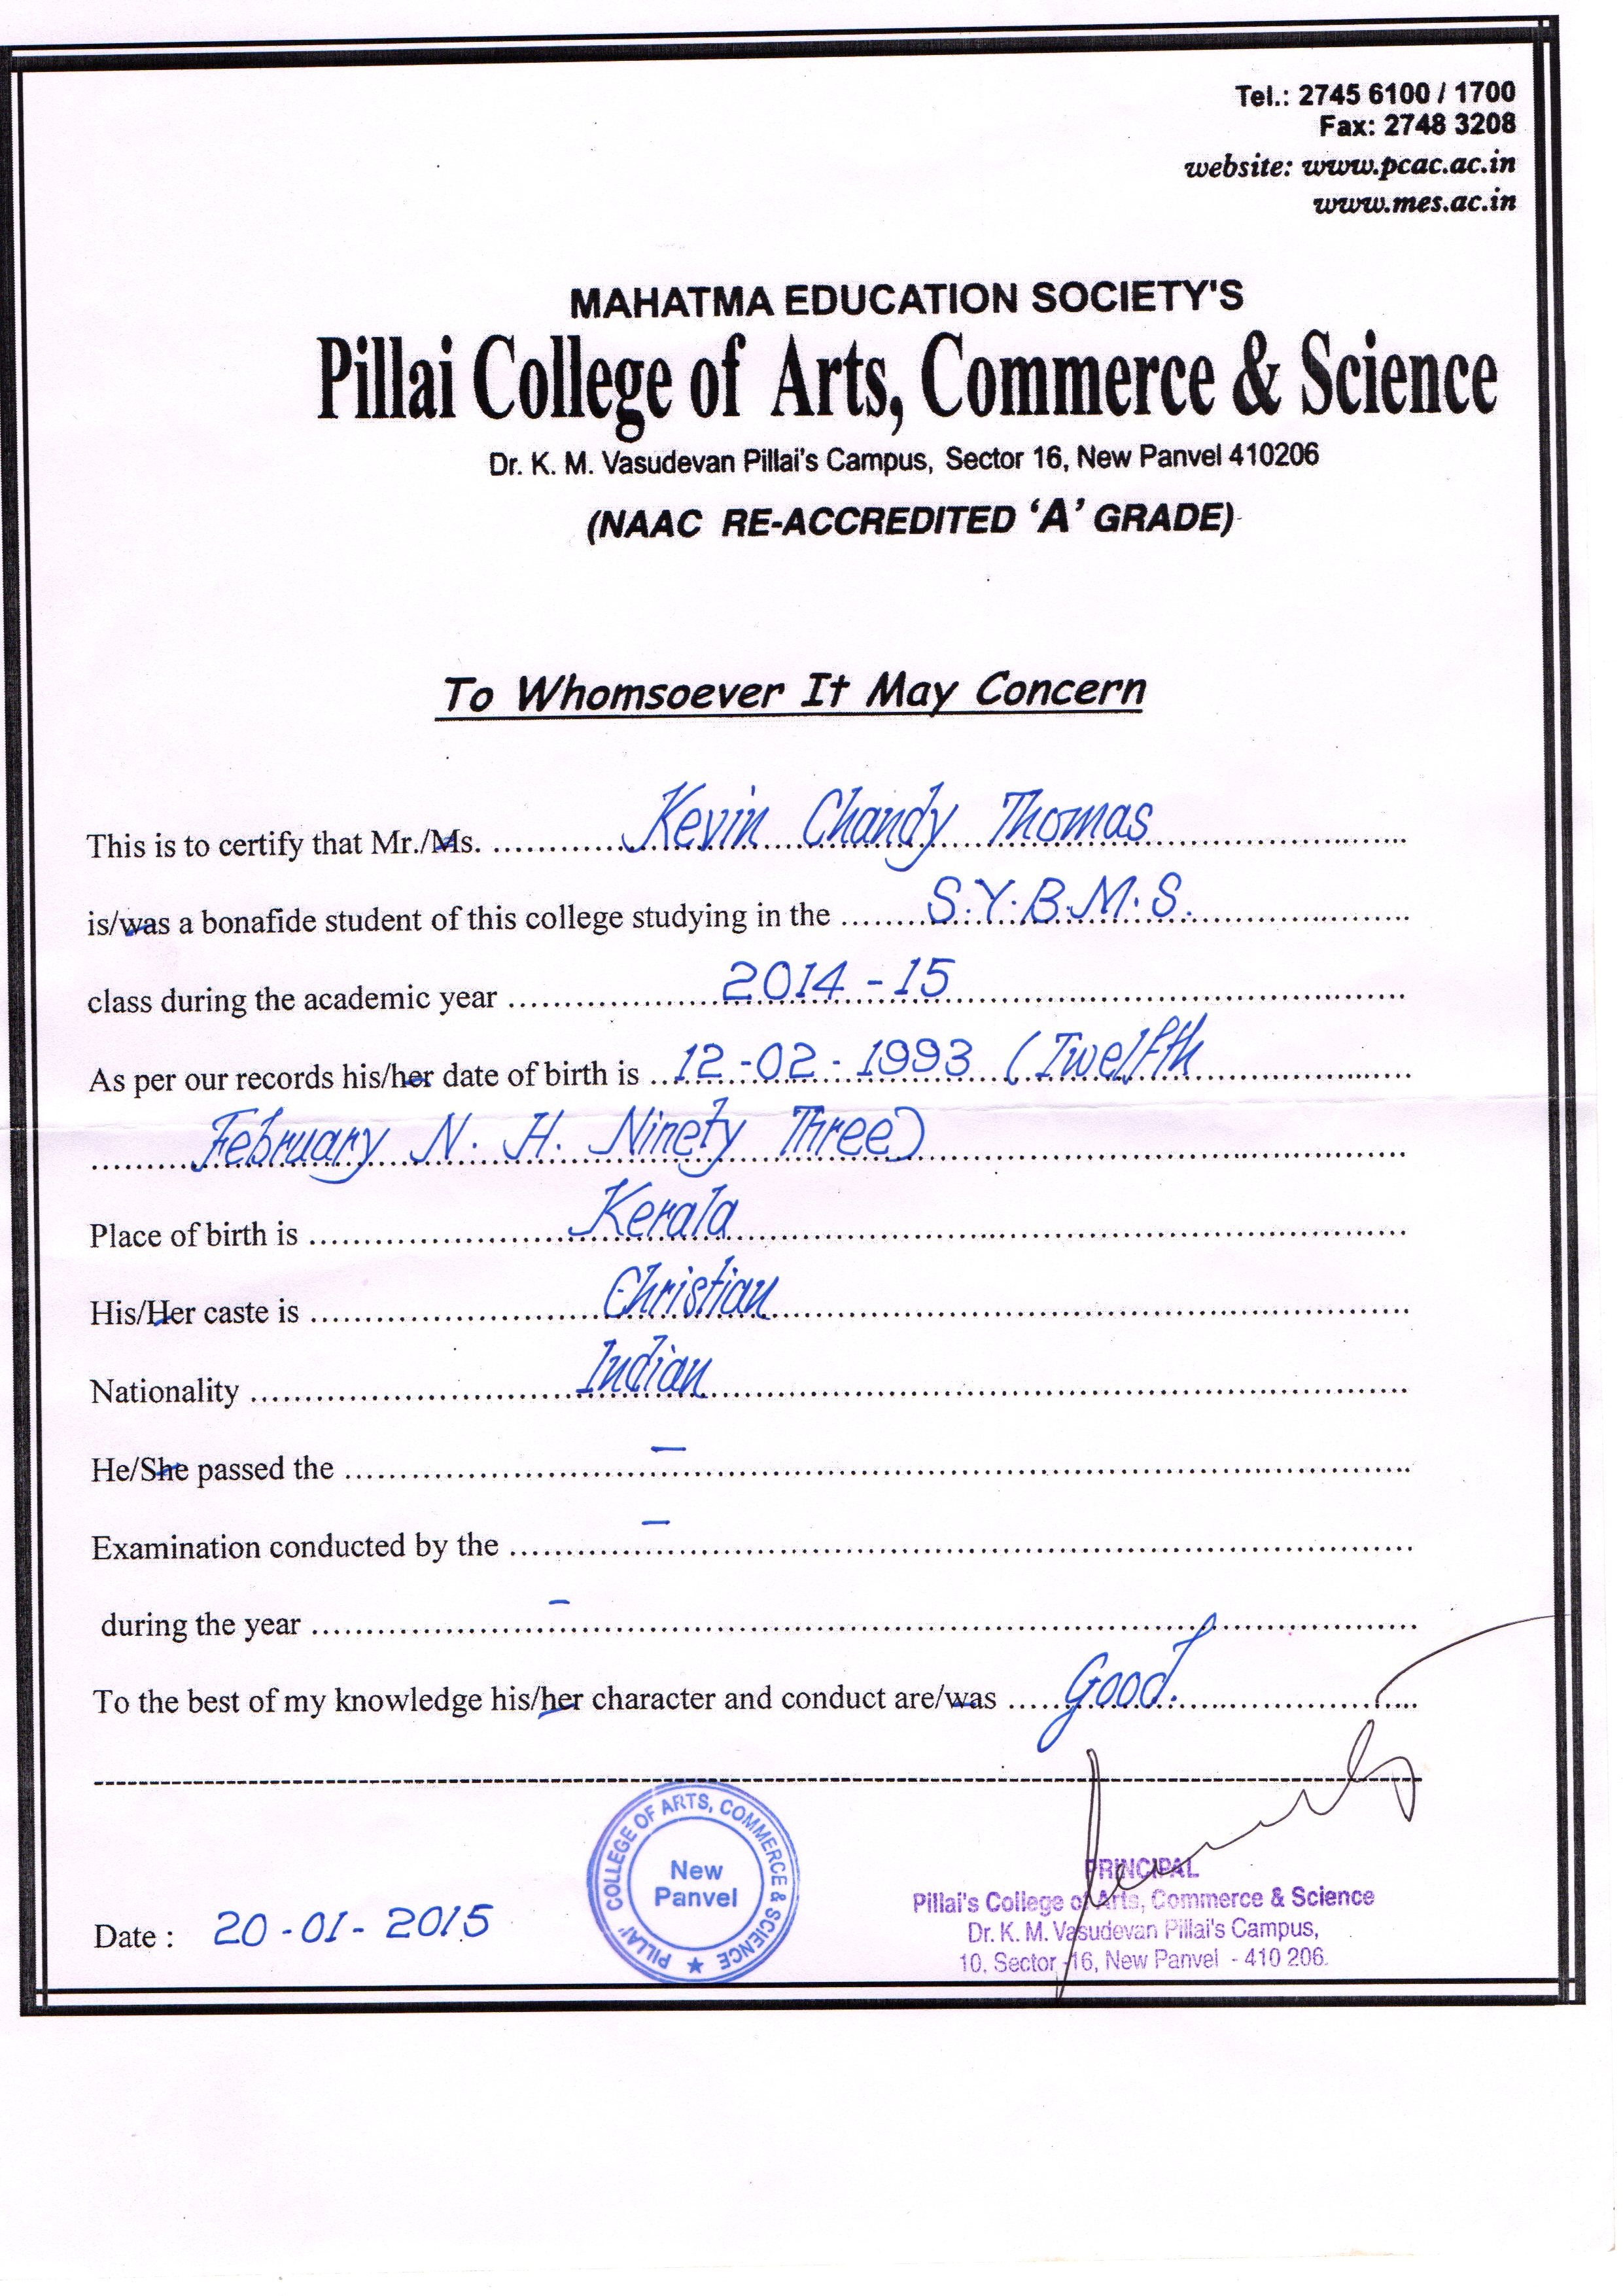 Tel.: 2745 6100 / 1700
Fax: 2748 3208
website: www.pcac.ac.in
www.mes.ac.in
MAHATMA EDUCATION SOCIETY'S
Pillai College of Arts, Commerce & Science
Dr. K. M. Vasudevan Pillai's Campus, Sector 16, New Panvel 410206
(NAAC RE-ACCREDITED ‘A’ GRADE)
To Whomsoever It May Concern
This is to certify that Mr./Ms. Kevin Chandy Thomas
is/was a bonafide student of this college studying in the S.Y.B.M.S.
class during the academic year 2014-15
As per our records his/her date of birth is 12-02-1993 (Twelfth
February N. H. Ninety Three)
Place of birth is Kerala
His/Her caste is Christian
Nationality Indian
He/She passed the –
Examination conducted by the –
during the year –
To the best of my knowledge his/her character and conduct are/was Good.
PILLAI' COLLEGE OF ARTS, COMMERCE & SCIENCE ★
New
Panvel
PRINCIPAL
Pillai's College of Arts, Commerce & Science
Dr. K. M. Vasudevan Pillai's Campus,
10, Sector -16, New Panvel - 410 206.
Date : 20-01-2015